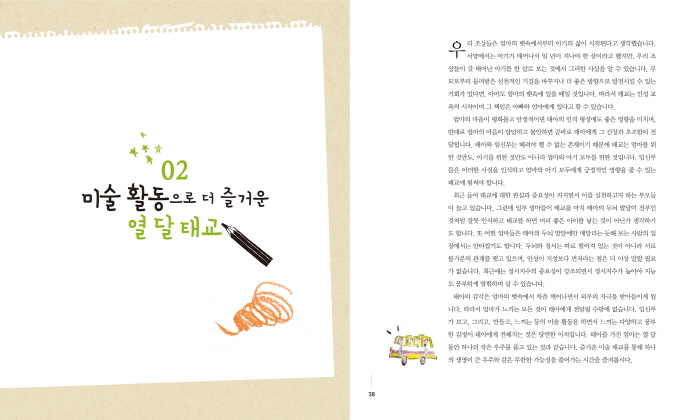 02
미술 활동으로 더 즐거운
열 달 태교
우리 조상들은 엄마의 뱃속에서부터 아기의 삶이 시작된다고 생각했습니다.
서양에서는 아기가 태어나서 일 년이 지나야 한 살이라고 했지만, 우리 조
상들이 갓 태어난 아기를 한 살로 보는 것에서 그러한 사실을 알 수 있습니다. 부
모로부터 물려받은 선천적인 기질을 바꾸거나 더 좋은 방향으로 발전시킬 수 있는
기회가 있다면, 아마도 엄마의 뱃속에 있을 때일 것입니다. 따라서 태교는 인성 교
육의 시작이며 그 책임은 아빠와 엄마에게 있다고 할 수 있습니다.
엄마의 마음이 평화롭고 안정적이면 태아의 인격 형성에도 좋은 영향을 미치며,
반대로 엄마의 마음이 답답하고 불안하면 곧바로 태아에게 그 긴장과 초조함이 전
달됩니다. 태아와 임신부는 떼려야 뗄 수 없는 존재이기 때문에 태교는 엄마를 위
한 것만도, 아기를 위한 것만도 아니라 엄마와 아기 모두를 위한 것입니다. 임신부
들은 이러한 사실을 인식하고 엄마와 아기 모두에게 긍정적인 영향을 줄 수 있는
태교에 힘써야 합니다.
최근 들어 태교에 대한 관심과 중요성이 커지면서 이를 실천하고자 하는 부모들
이 늘고 있습니다. 그런데 일부 엄마들이 태교를 마치 태아의 두뇌 발달이 전부인
것처럼 잘못 인식하고 태교를 하면 머리 좋은 아이를 낳는 것이 아닌가 생각하기
도 합니다. 또 어떤 엄마들은 태아의 두뇌 발달에만 매달리는 듯해 보는 사람의 입
장에서는 안타깝기도 합니다. 두뇌와 정서는 따로 떨어져 있는 것이 아니라 서로
불가분의 관계를 맺고 있으며, 인성이 지성보다 먼저라는 점은 더 이상 말할 필요
가 없습니다. 최근에는 정서지수의 중요성이 강조되면서 정서지수가 높아야 지능
도 풍부하게 발휘하며 살 수 있습니다.
태아의 감각은 엄마의 뱃속에서 차츰 깨어나면서 외부의 자극을 받아들이게 됩
니다. 따라서 엄마가 느끼는 모든 것이 태아에게 전달될 수밖에 없습니다. 임신부
가 보고, 그리고, 만들고, 느끼는 등의 미술 활동을 하면서 느끼는 다양하고 풍부
한 감정이 태아에게 전해지는 것은 당연한 이치입니다. 태아를 가진 엄마는 열 달
동안 하나의 작은 우주를 품고 있는 것과 같습니다. 즐거운 미술 태교를 통해 하나
의 생명이 큰 우주와 같은 무한한 가능성을 품어가는 시간을 즐겨봅시다.
38